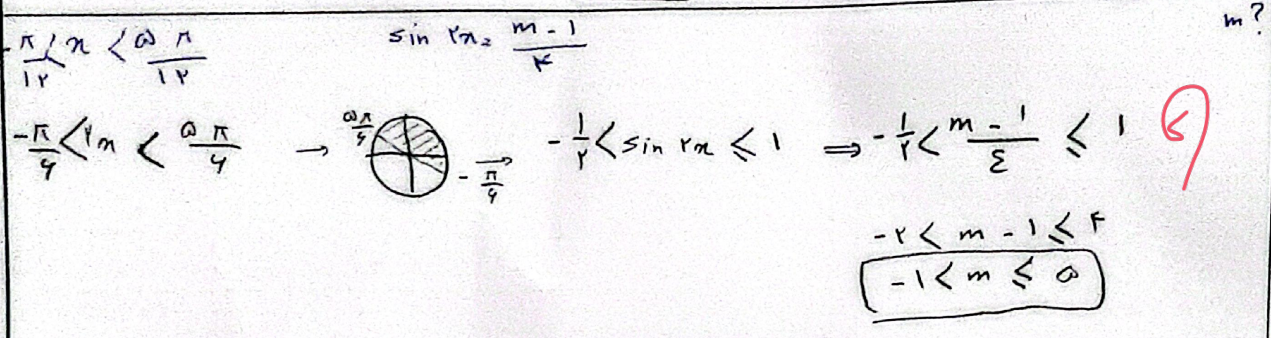 -π/۱۲ < x < ۵π/۱۲    sin ۲x = (m - ۱)/۴    m?
-π/۶ < ۲x < ۵π/۶ → ۵π/۶ -π/۶ → -۱/۲ < sin ۲x ≤ ۱ ⇒ -۱/۲ < (m - ۱)/٤ ≤ ۱
-۲ < m - ۱ ≤ ۴
-۱ < m ≤ ۵